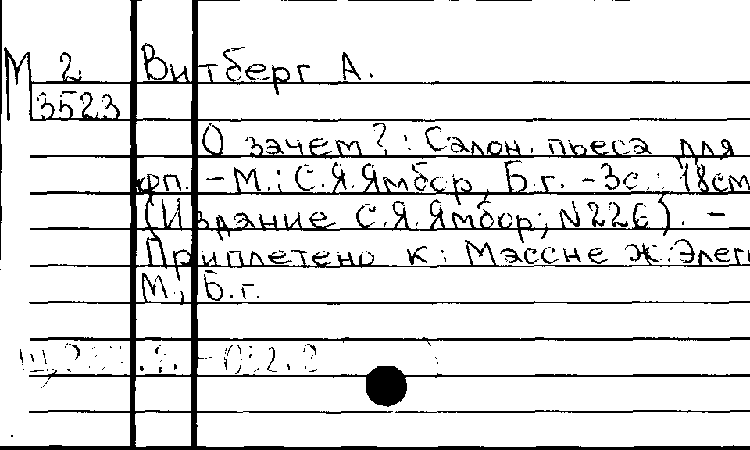 М 2 Витберг А.
3523
О зачем? : Салон. пьеса для
фп. - М.: С.Я.Ямбор, Б.г. - 3с.; 18см
(Издание С.Я.Ямбор; N226). -
Приплетено к: Массне Ж. Элег
М., Б.г.